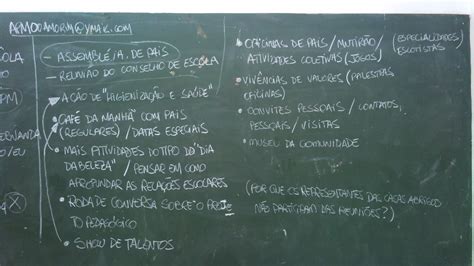 ARMODAMORIM@YMAIL.COM
- ASSEMBLÉIA DE PAIS
- REUNIÃO DO CONSELHO DE ESCOLA
• AÇÃO DE "HIGIENIZAÇÃO E SAÚDE"
• CAFÉ DA MANHÃ COM PAIS
(REGULARES) / DATAS ESPECIAIS
• MAIS ATIVIDADES DO TIPO DO "DIA
DA BELEZA" / PENSAR EM COMO
APROFUNDAR AS RELAÇÕES ESCOLARES
• RODA DE CONVERSA SOBRE O PROJE
TO PEDAGÓGICO
• SHOW DE TALENTOS
• OFICINAS DE PAIS / MUTIRÃO / (ESPECIALIDADES)
ATIVIDADES COLETIVAS (JOGOS) ESCOTISTAS
• VIVÊNCIAS DE VALORES (PALESTRAS
OFICINAS)
• CONVITES PESSOAIS / CONTATOS
PESSOAIS / VISITAS
• MUSEU DA COMUNIDADE
(POR QUE OS REPRESENTANTES DAS CASAS ABRIGO
NÃO PARTICIPAM DAS REUNIÕES?)